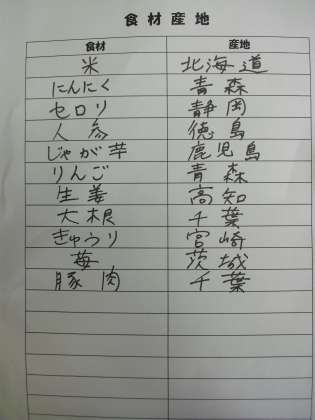 食材産地
食材 産地
米 北海道
にんにく 青森
セロリ 静岡
人参 徳島
じゃが芋 鹿児島
りんご 青森
生姜 高知
大根 千葉
きゅうり 宮崎
苺 茨城
豚肉 千葉